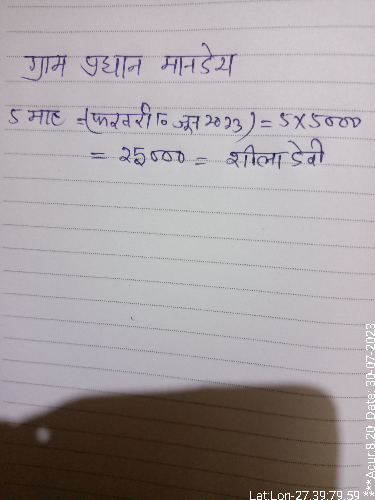 ग्राम प्रधान मानदेय
5 माह =(फरवरी से जून 2023) = 5×5000
= 25000 = शीला देवी
Lat:Lon-27.39:79.59
***Acur:8.20 Date: 30-07-2023